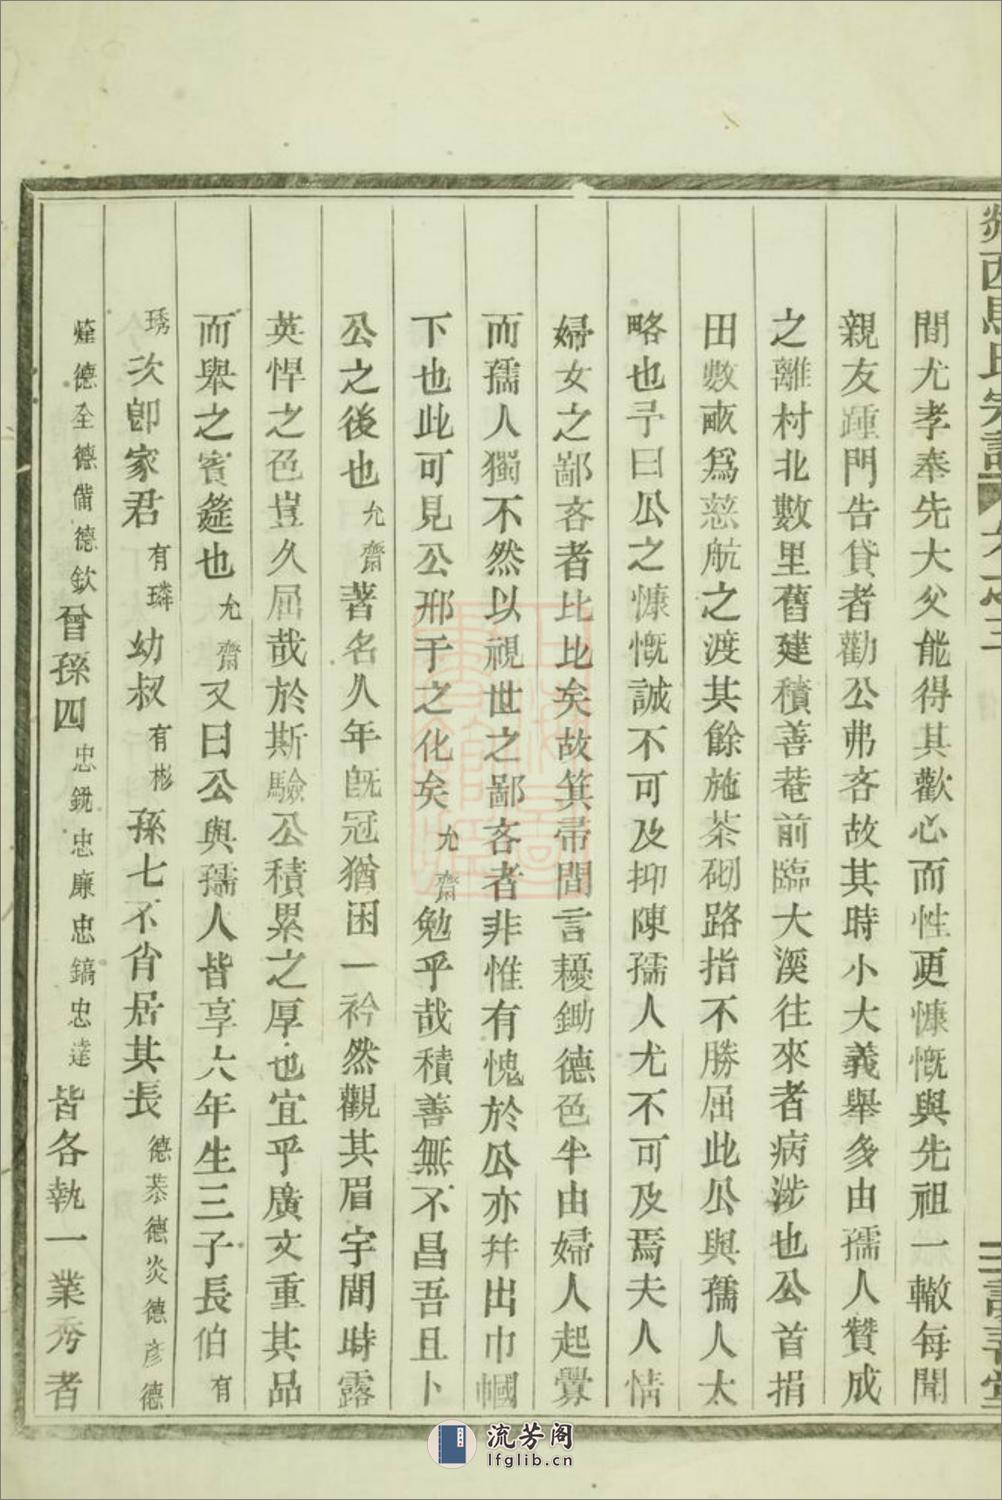 間尤孝奉先大父能得其歡心而性更慷慨與先祖一轍每聞
親友踵門告貸者勸公弗吝故其時小大義舉多由孺人贊成
之離村北數里舊建積善菴前臨大溪往來者病涉也公首捐
田數畝爲慈航之渡其餘施茶砌路指不勝屈此公與孺人太
略也予曰公之慷慨誠不可及抑陳孺人尤不可及焉夫人情
婦女之鄙吝者比比矣故箕帚間言耰鋤德色半由婦人起釁
而孺人獨不然以視世之鄙吝者非惟有愧於公亦幷出巾幗
下也此可見公邢于之化矣允齋勉乎哉積善無不昌吾且卜
公之後也允齋著名人年旣冠猶困一衿然觀其眉宇間時露
英悍之色豈久屈哉於斯驗公積累之厚也宜乎廣文重其品
而舉之賓筵也允齋又曰公與孺人皆享六年生三子長伯有
琇次卽家君有璘幼叔有彬孫七不肖居其長德恭德炎德彥德
煃德全德備德欽曾孫四忠銳忠廉忠鎬忠達皆各執一業秀者
流芳阁
lfglib.cn